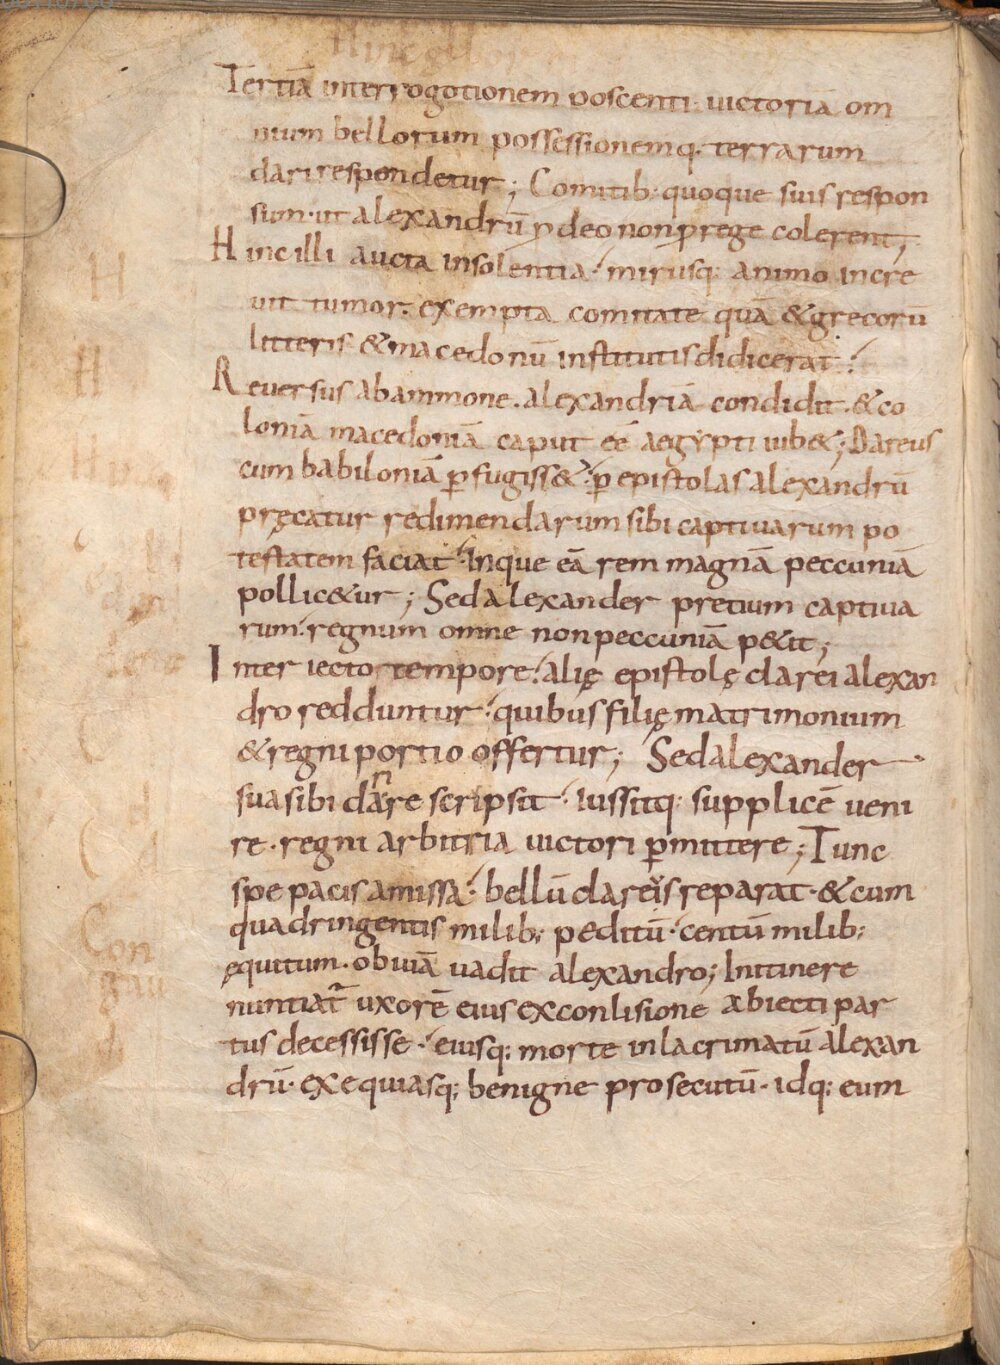 Tertiā interrogationem poscenti. uictoriā om
nium bellorum possessionemq. terrarum
dari respondetur; Comitib: quoque suis respon
sum. ut alexandrū ꝓ deo non ꝓ rege colerent;
Hinc illi aucta insolentia. mirusq: animo incre
uit tumor. exempta comitate quā & grecorū
litteris & macedonū institutis didicerat.
Reuersus ab ammone. alexandriā condidit. & co
loniā macedoniā caput eē aegypti iub&; Dareus
cum babiloniā ꝑfugiss&. ꝑ epistolas alexandrū
pręcatur redimendarum sibi captiuarum po
testatem faciat. Inque eā rem magnā peccuniā
pollic&ur; Sed alexander pretium captiua
rum. regnum omne non peccuniā p&it;
Inter iecto tempore. alię epistolę clarei alexan
dro redduntur. quibus filię matrimonium
& regni portio offertur; Sed alexander
sua sibi dare scripsit. iussitq: supplicē ueni
re. regni arbitria uictori ꝑmittere; Tunc
spe pacis amissa. bellū clareis reparat. & cum
quadringentis milib: peditū. centū milib:
ęquitum. obuiā uadit alexandro; In itinere
nuntiat uxorē eius ex conlisione abiecti par
tus decessisse. eiusq: morte inlacrimatū alexan
drū. exequiasq; benigne prosecutū. idq: eum